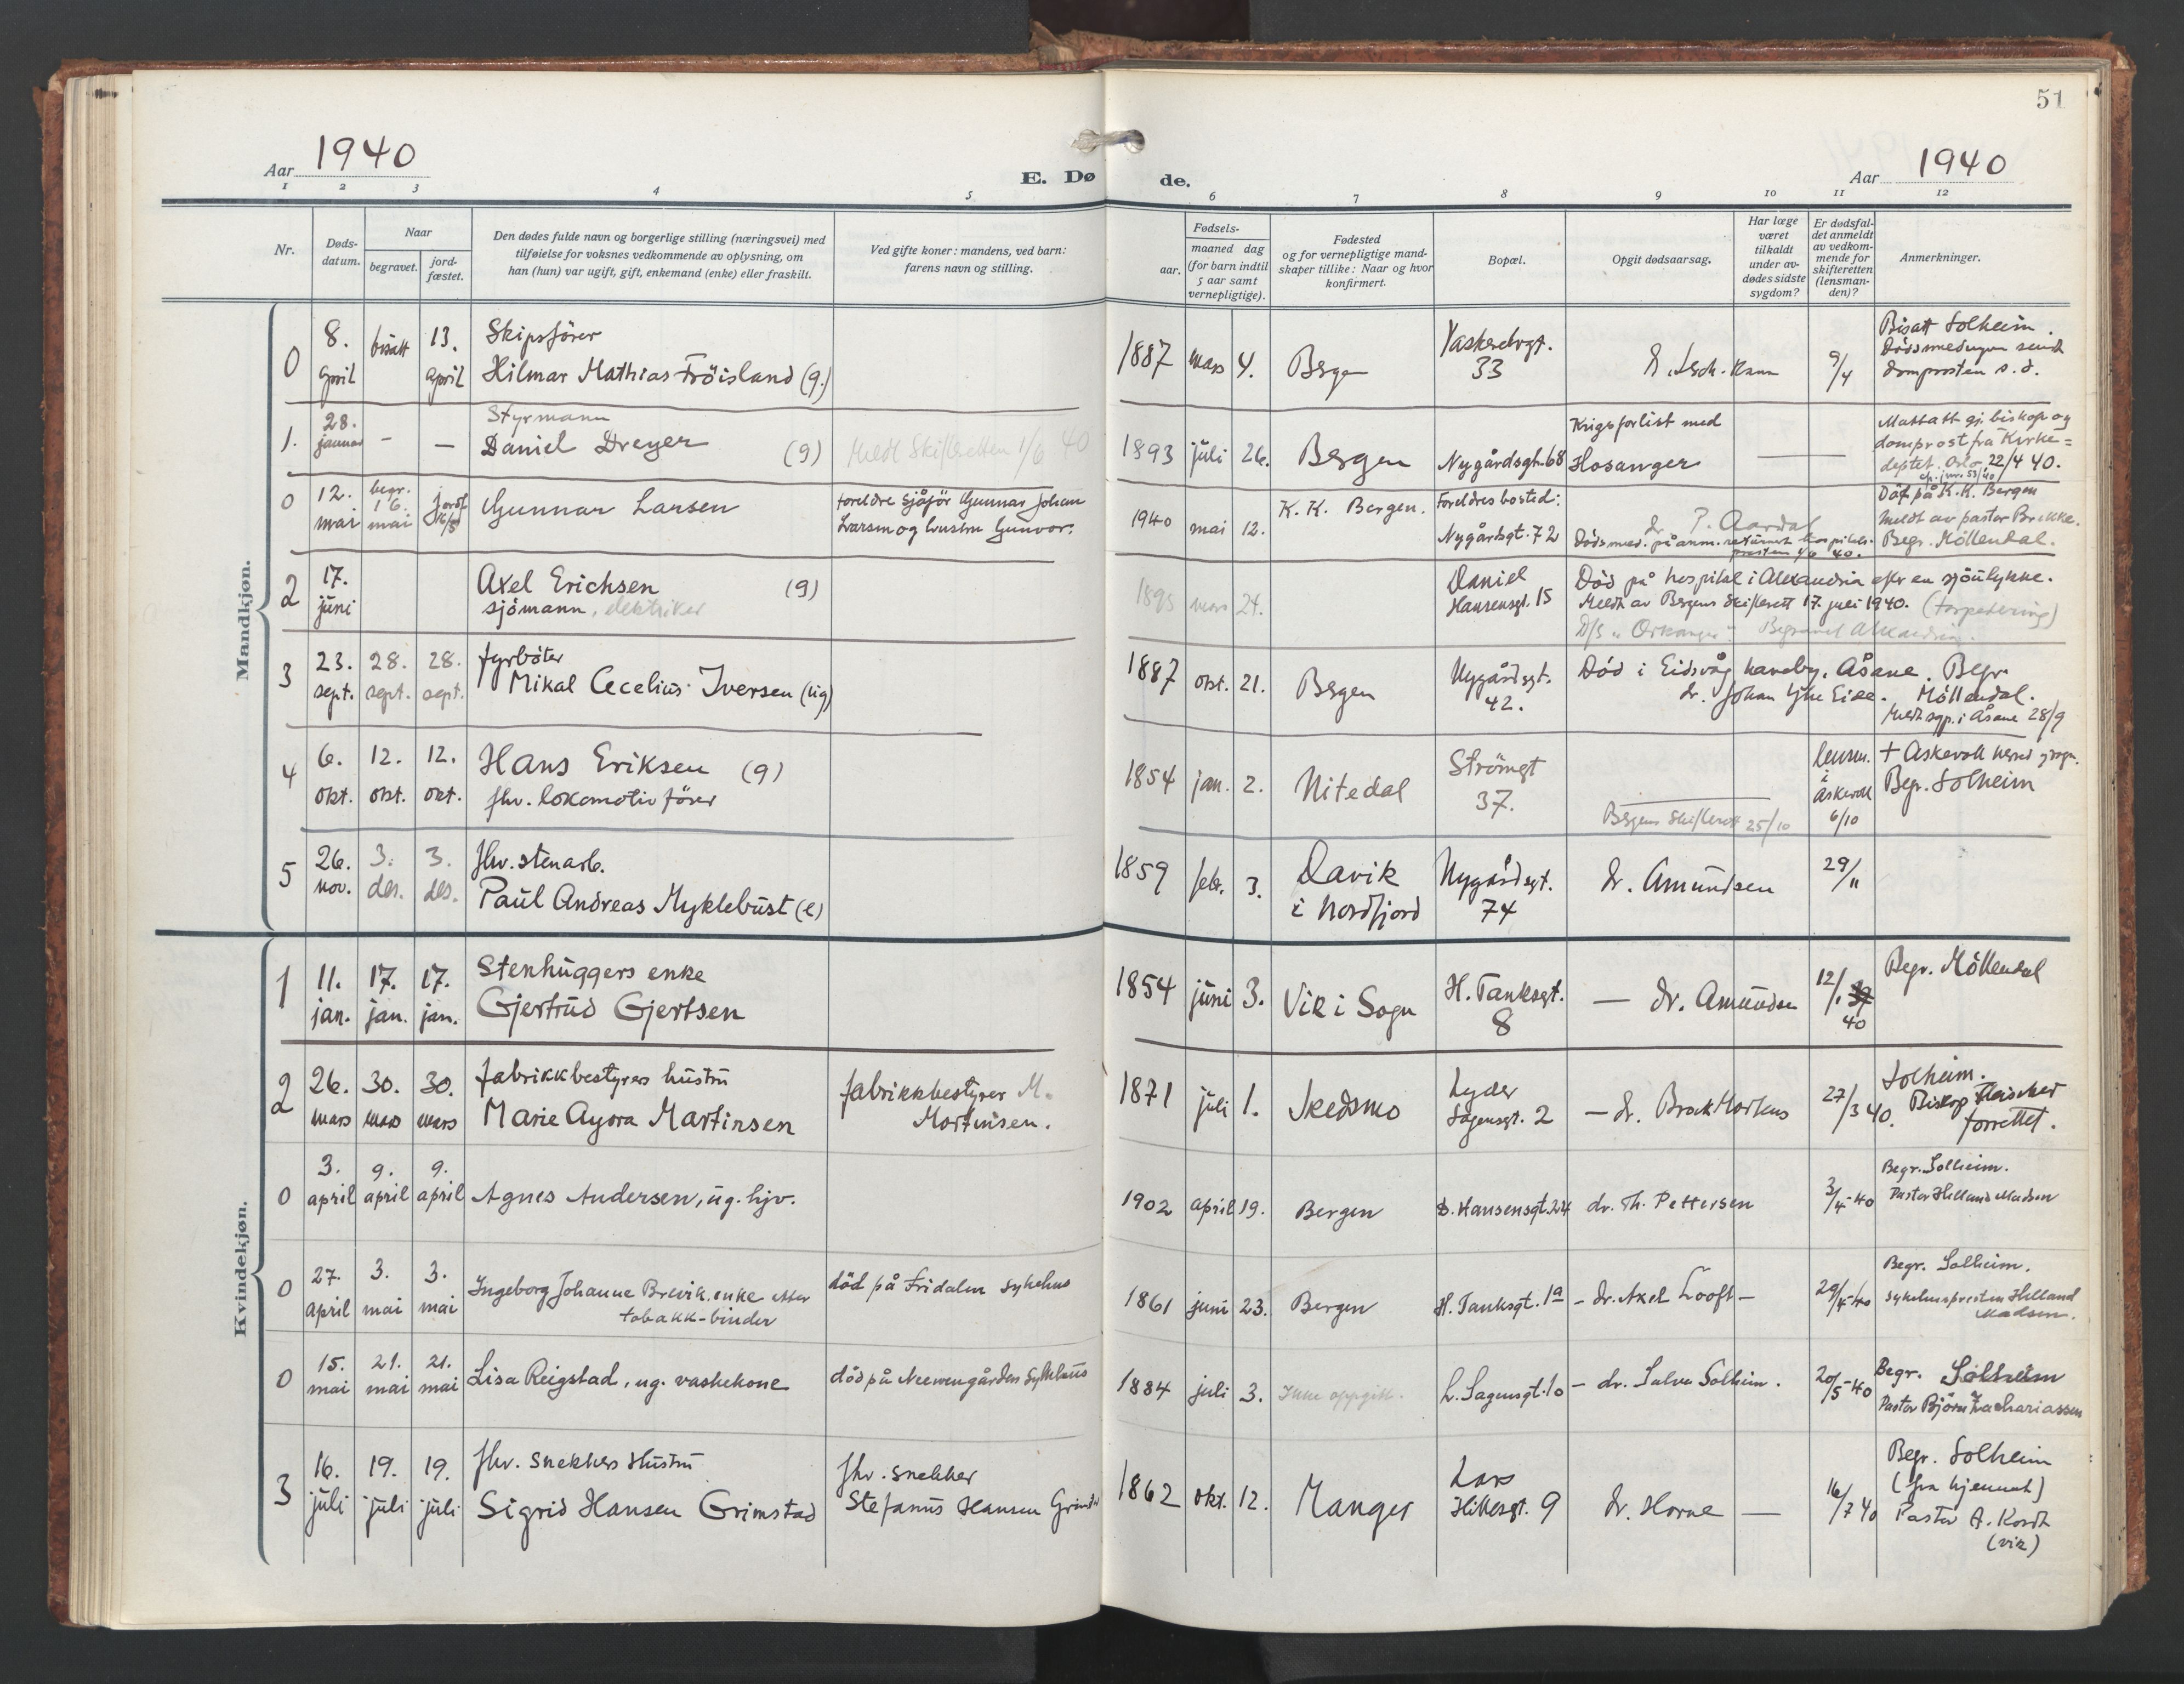 51
Aar 1940
E. Dø de.
Aar 1940
1 2 3 4 5 6 7 8 9 10 11 12
Nr.
Døds-
datum.
Naar
begravet.
jord-
fæstet.
Den dødes fulde navn og borgerlige stilling (næringsvei) med
tilføielse for voksnes vedkommende av oplysning, om
han (hun) var ugift, gift, enkemand (enke) eller fraskilt.
Ved gifte koner: mandens, ved barn:
farens navn og stilling.
Fødsels-
aar.
maaned dag
(for barn indtil
5 aar samt
vernepligtige).
Fødested
og for vernepligtige mand-
skaper tillike: Naar og hvor
konfirmert.
Bopæl.
Opgit dødsaarsag.
Har læge
været
tilkaldt
under av-
dødes sidste
sygdom?
Er dødsfal-
det anmeldt
av vedkom-
mende for
skifteretten
(lensman-
den)?
Anmerkninger.
Mandkjøn.
0 8. april bisatt 13. april
Skipsförer
Hilmar Mathias Fröisland (g.)
1887 mars 4. Bergen
33
9/4
Bisatt Solheim.
domprosten s. d.
1. 28. januar - -
Styrmann
Daniel Dreyer (g)
Meldt Skifteretten 1/6 40
1893 juli 26. Bergen Nygårdsgt. 68
Krigsforlist med
Hosanger
Mottatt gj. biskop og
domprost fra Kirke=
deptet. Oslo, 22/4 40.
0 12. mai begr. 16. mai jordf. 16/5
Gunnar Larsen
foreldre sjåför Gunnar Johan
Larsen og hustru Gunvor.
1940 mai 12. K. K. Bergen.
Foreldres bosted:
Nygårdsgt. 72
dr. P. Aardal
Död på K. K. Bergen
meldt av pastor Brekke.
Begr. Möllendal.
2 17. juni
Axel Erichsen (g)
sjömann, elektriker
1895 mars 24.
Daniel
Hansensgt. 15
Död på hospital i Alexandria efter en sjöulykke.
Meldt av Bergens Skifterett 17. juli 1940. (torpedering)
D/S "Orkanger" Begravet Alexandria.
3 23. sept. 28. sept. 28. sept.
fyrböter
Mikal Cecelius Iversen (ug)
1887 okt. 21. Bergen
Nygårdsgt.
42.
Död i Eidsvåg, Åsane. Begr.
Möllendal.
Meldt sgp. i Åsane 28/9
4 6. okt. 12. okt. 12. okt.
Hans Eriksen (g)
fhv. lokomotivförer
1854 jan. 2. Nitedal
Strömgt
37.
Bergens Skifterett 25/10
lensm.
i
Askvoll
6/10
Begr. Solheim
5 26. nov. 3. des. 3. des.
fhv. stenarb.
Paul Andreas Myklebust (e)
1859 febr. 3.
Davik
i Nordfjord
Nygårdsgt.
74
dr. Amundsen
29/11
Kvindekjøn.
1 11. jan. 17. jan. 17. jan.
Stenhuggers enke
Gjertrud Gjertsen
1854 juni 3. Vik i Sogn
H. Tanksgt.
8
- dr. Amundsen
12/1 40
Begr. Möllendal
2 26. mars 30. mars 30. mars
fabrikkbestyrers hustru
Marie Agora Martinsen
fabrikkbestyrer M.
Martinsen.
1871 juli 1. Skedsmo
Lyder
Sagensgt. 2
27/3 40.
Solheim.
Biskop Fleischer
forrettet.
0 3. april 9. april 9. april
Agnes Andersen, ug. hjv.
1902 april 19. Bergen D. Hansensgt. 24 dr. Th. Pettersen
3/4-40
Begr. Solheim.
Pastor Helland Madsen
0 27. april 3. mai 3. mai
Ingeborg Johanne Brevik, enke etter
tobakk-binder
död på Fridalen sykehus
1861 juni 23. Bergen H. Tanksgt. 1a - dr. Axel Looft -
29/4-40
Begr. Solheim.
sykehuspresten Helland
Madsen.
0 15. mai 21. mai 21. mai
Lisa Reigstad, ug. vaskekone
död på Neevengården Sykehus
1884 juli 3. Ikke oppgitt. L. Sagensgt. 10 - dr. Salve Solheim.
20/5-40
Begr. Solheim
Pastor Björn Zachariassen
3 16. juli 19. juli 19. juli
fhv. snekkers Hustru
Sigrid Hansen Grimstad
fhv. snekker
Stefanus Hansen
1862 okt. 12. Manger
Lars
Hillesgt. 9
dr. Horne -
16/7 40
Begr. Solheim
(fra hjemmet)
Pastor A. Kordt
(vik)